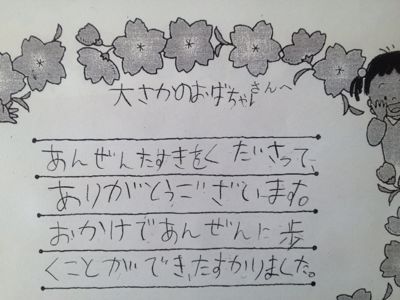 大さかのおばちゃんさんへ
あんぜんたすきをくださって、
ありがとうございます。
おかけであんぜんに歩
くことができ、たすかりました。